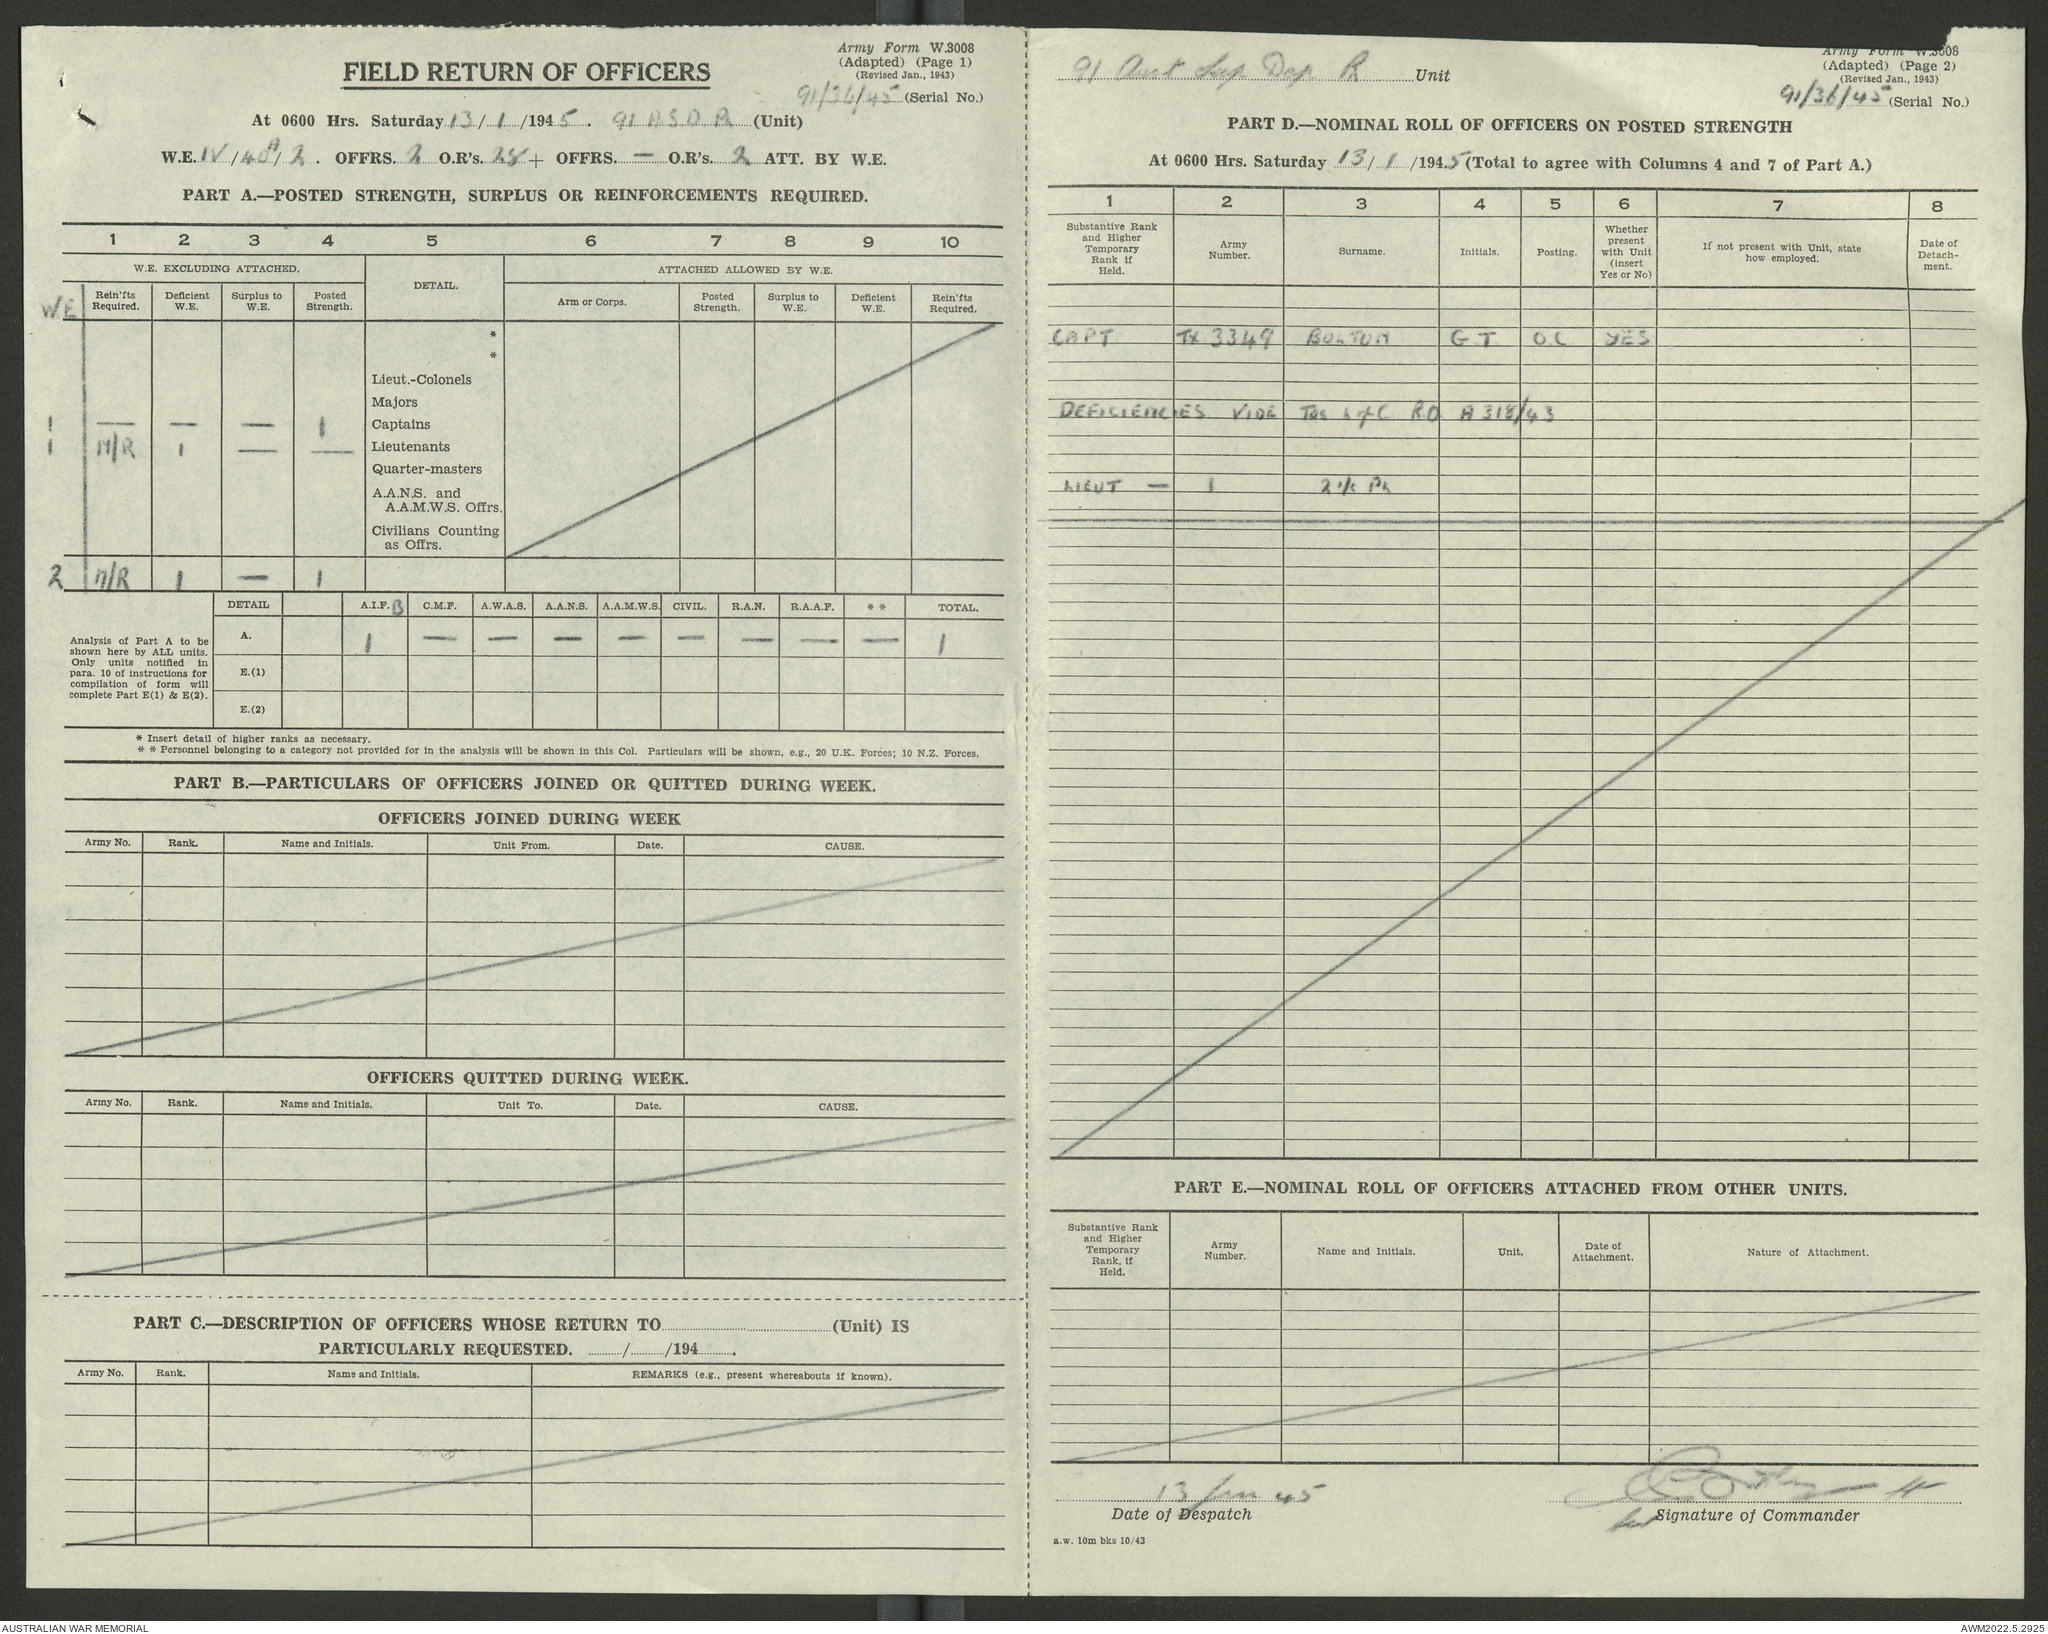 Army Form W.3008
(Adapted) (Page 1)
(Revised Jan., 1943)
FIELD RETURN OF OFFICERS
91/36/45 (Serial No.)
At 0600 Hrs. Saturday 13/1/1945. 91 A S D Pl (Unit)
W.E. IV/40A/2. OFFRS. 2 O.R's. 28 + OFFRS. — O.R's. 2 ATT. BY W.E.
PART A.—POSTED STRENGTH, SURPLUS OR REINFORCEMENTS REQUIRED.
1 2 3 4 5 6 7 8 9 10
W.E. EXCLUDING ATTACHED. DETAIL. ATTACHED ALLOWED BY W.E.
WE Rein'fts Required. Deficient W.E. Surplus to W.E. Posted Strength. Arm or Corps. Posted Strength. Surplus to W.E. Deficient W.E. Rein'fts Required.
*
*
Lieut.-Colonels
Majors
1 — — — 1 Captains
1 N/R 1 — — Lieutenants
Quarter-masters
A.A.N.S. and
A.A.M.W.S. Offrs.
Civilians Counting
as Offrs.
2 N/R 1 — 1
DETAIL A.I.F. B C.M.F. A.W.A.S. A.A.N.S. A.A.M.W.S. CIVIL. R.A.N. R.A.A.F. * * TOTAL.
Analysis of Part A to be
shown here by ALL units.
Only units notified in
para. 10 of instructions for
compilation of form will
complete Part E(1) & E(2).
A. 1 — — — — — — — — 1
E.(1)
E.(2)
* Insert detail of higher ranks as necessary.
* * Personnel belonging to a category not provided for in the analysis will be shown in this Col. Particulars will be shown, e.g., 20 U.K. Forces; 10 N.Z. Forces.
PART B.—PARTICULARS OF OFFICERS JOINED OR QUITTED DURING WEEK.
OFFICERS JOINED DURING WEEK
Army No. Rank. Name and Initials. Unit From. Date. CAUSE.
OFFICERS QUITTED DURING WEEK.
Army No. Rank. Name and Initials. Unit To. Date. CAUSE.
PART C.—DESCRIPTION OF OFFICERS WHOSE RETURN TO (Unit) IS
PARTICULARLY REQUESTED. / /194 .
Army No. Rank. Name and Initials. REMARKS (e.g., present whereabouts if known).
91 Aust Sup Dep Pl Unit
Army Form W.3008
(Adapted) (Page 2)
(Revised Jan., 1943)
91/36/45 (Serial No.)
PART D.—NOMINAL ROLL OF OFFICERS ON POSTED STRENGTH
At 0600 Hrs. Saturday 13/1/1945 (Total to agree with Columns 4 and 7 of Part A.)
1 2 3 4 5 6 7 8
Substantive Rank and Higher Temporary Rank if Held. Army Number. Surname. Initials. Posting. Whether present with Unit (insert Yes or No) If not present with Unit, state how employed. Date of Detach-ment.
CAPT TX 3349 BOLTON G T O.C YES
DEFICIENCIES VIDE Tas L of C R.O A 318/43
LIEUT — 1 2 i/c Pl
PART E.—NOMINAL ROLL OF OFFICERS ATTACHED FROM OTHER UNITS.
Substantive Rank and Higher Temporary Rank, if Held. Army Number. Name and Initials. Unit. Date of Attachment. Nature of Attachment.
13 Jan 45
Date of Despatch Signature of Commander
a.w. 10m bks 10/43
AUSTRALIAN WAR MEMORIAL AWM2022.5.2925